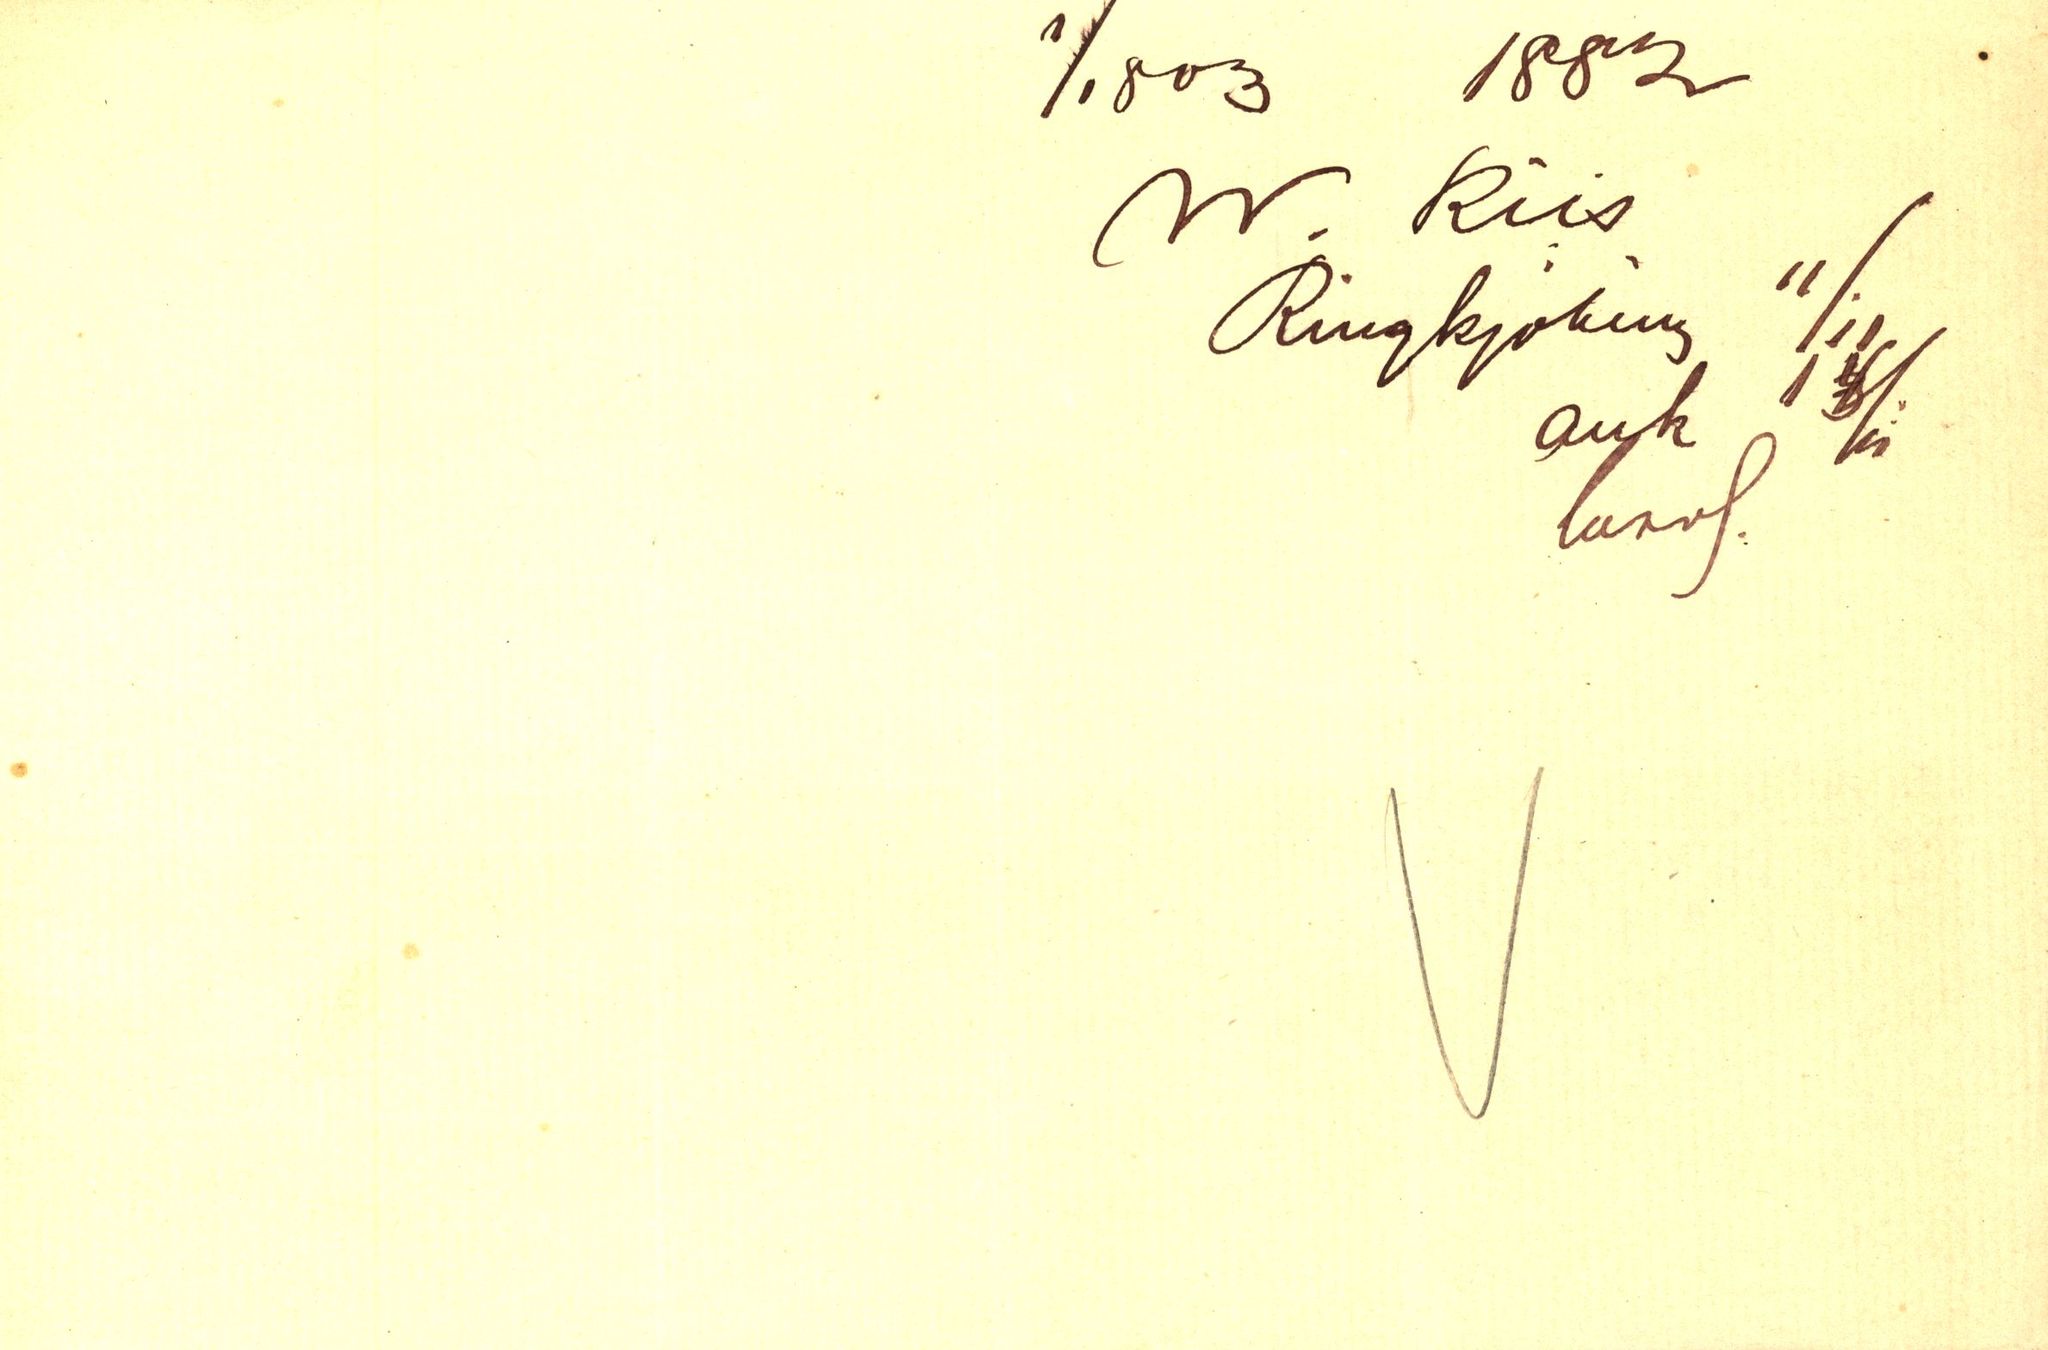 1/1803 1882
W. Riis
Ringkjøbing 11/11
ank 13/11